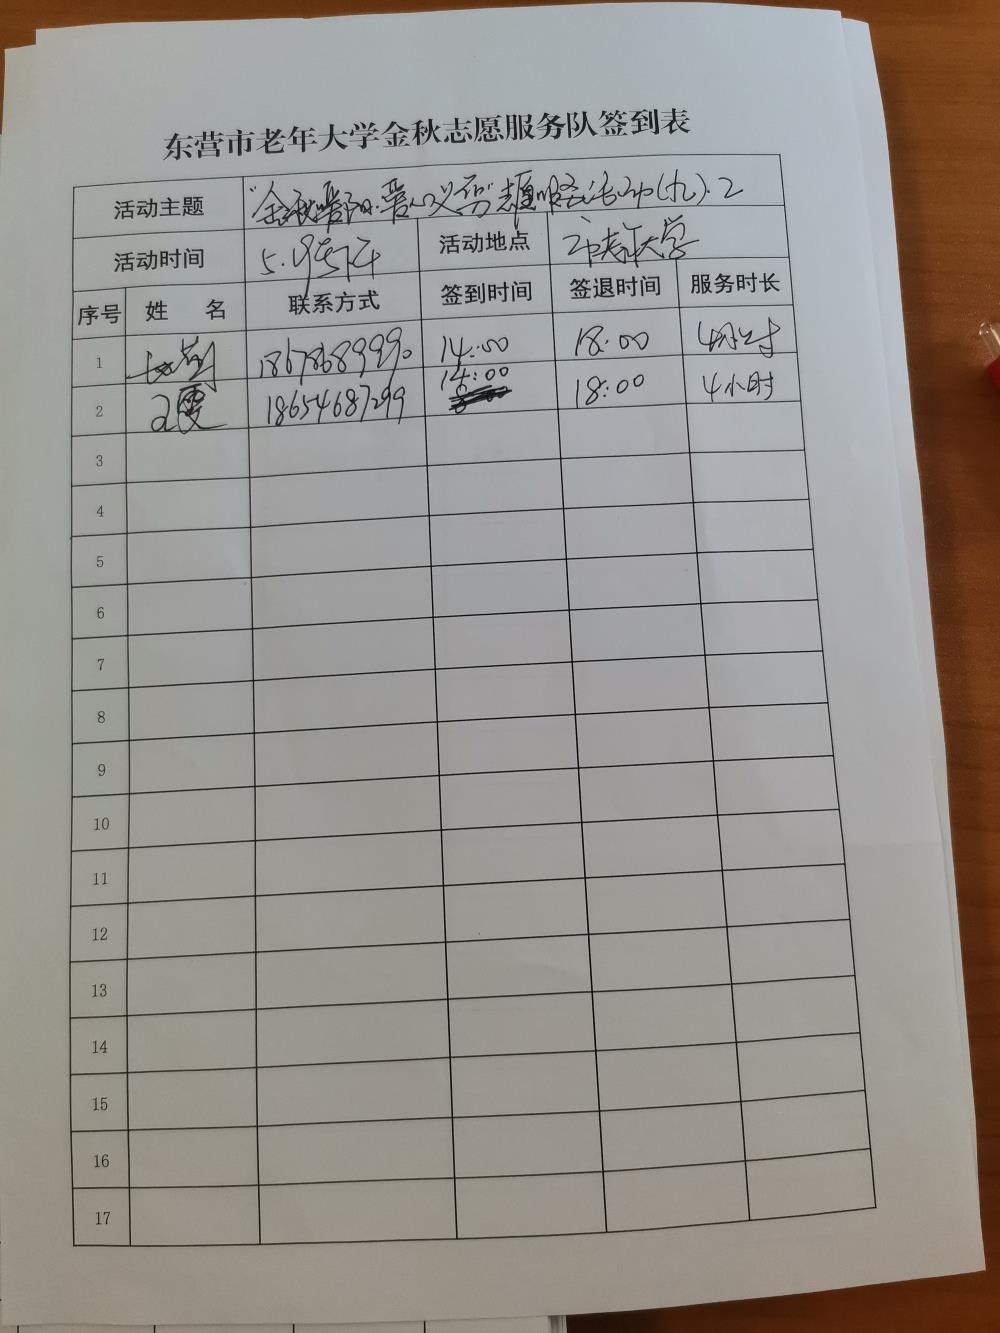 东营市老年大学金秋志愿服务队签到表
活动主题 "金秋 志愿服务活动(九).2
活动时间 5.9 下午 活动地点 市老年大学
序号 姓 名 联系方式 签到时间 签退时间 服务时长
1 18678689990 14:00 18:00 4小时
2 王霞 18654687299 14:00 18:00 4小时
3
4
5
6
7
8
9
10
11
12
13
14
15
16
17